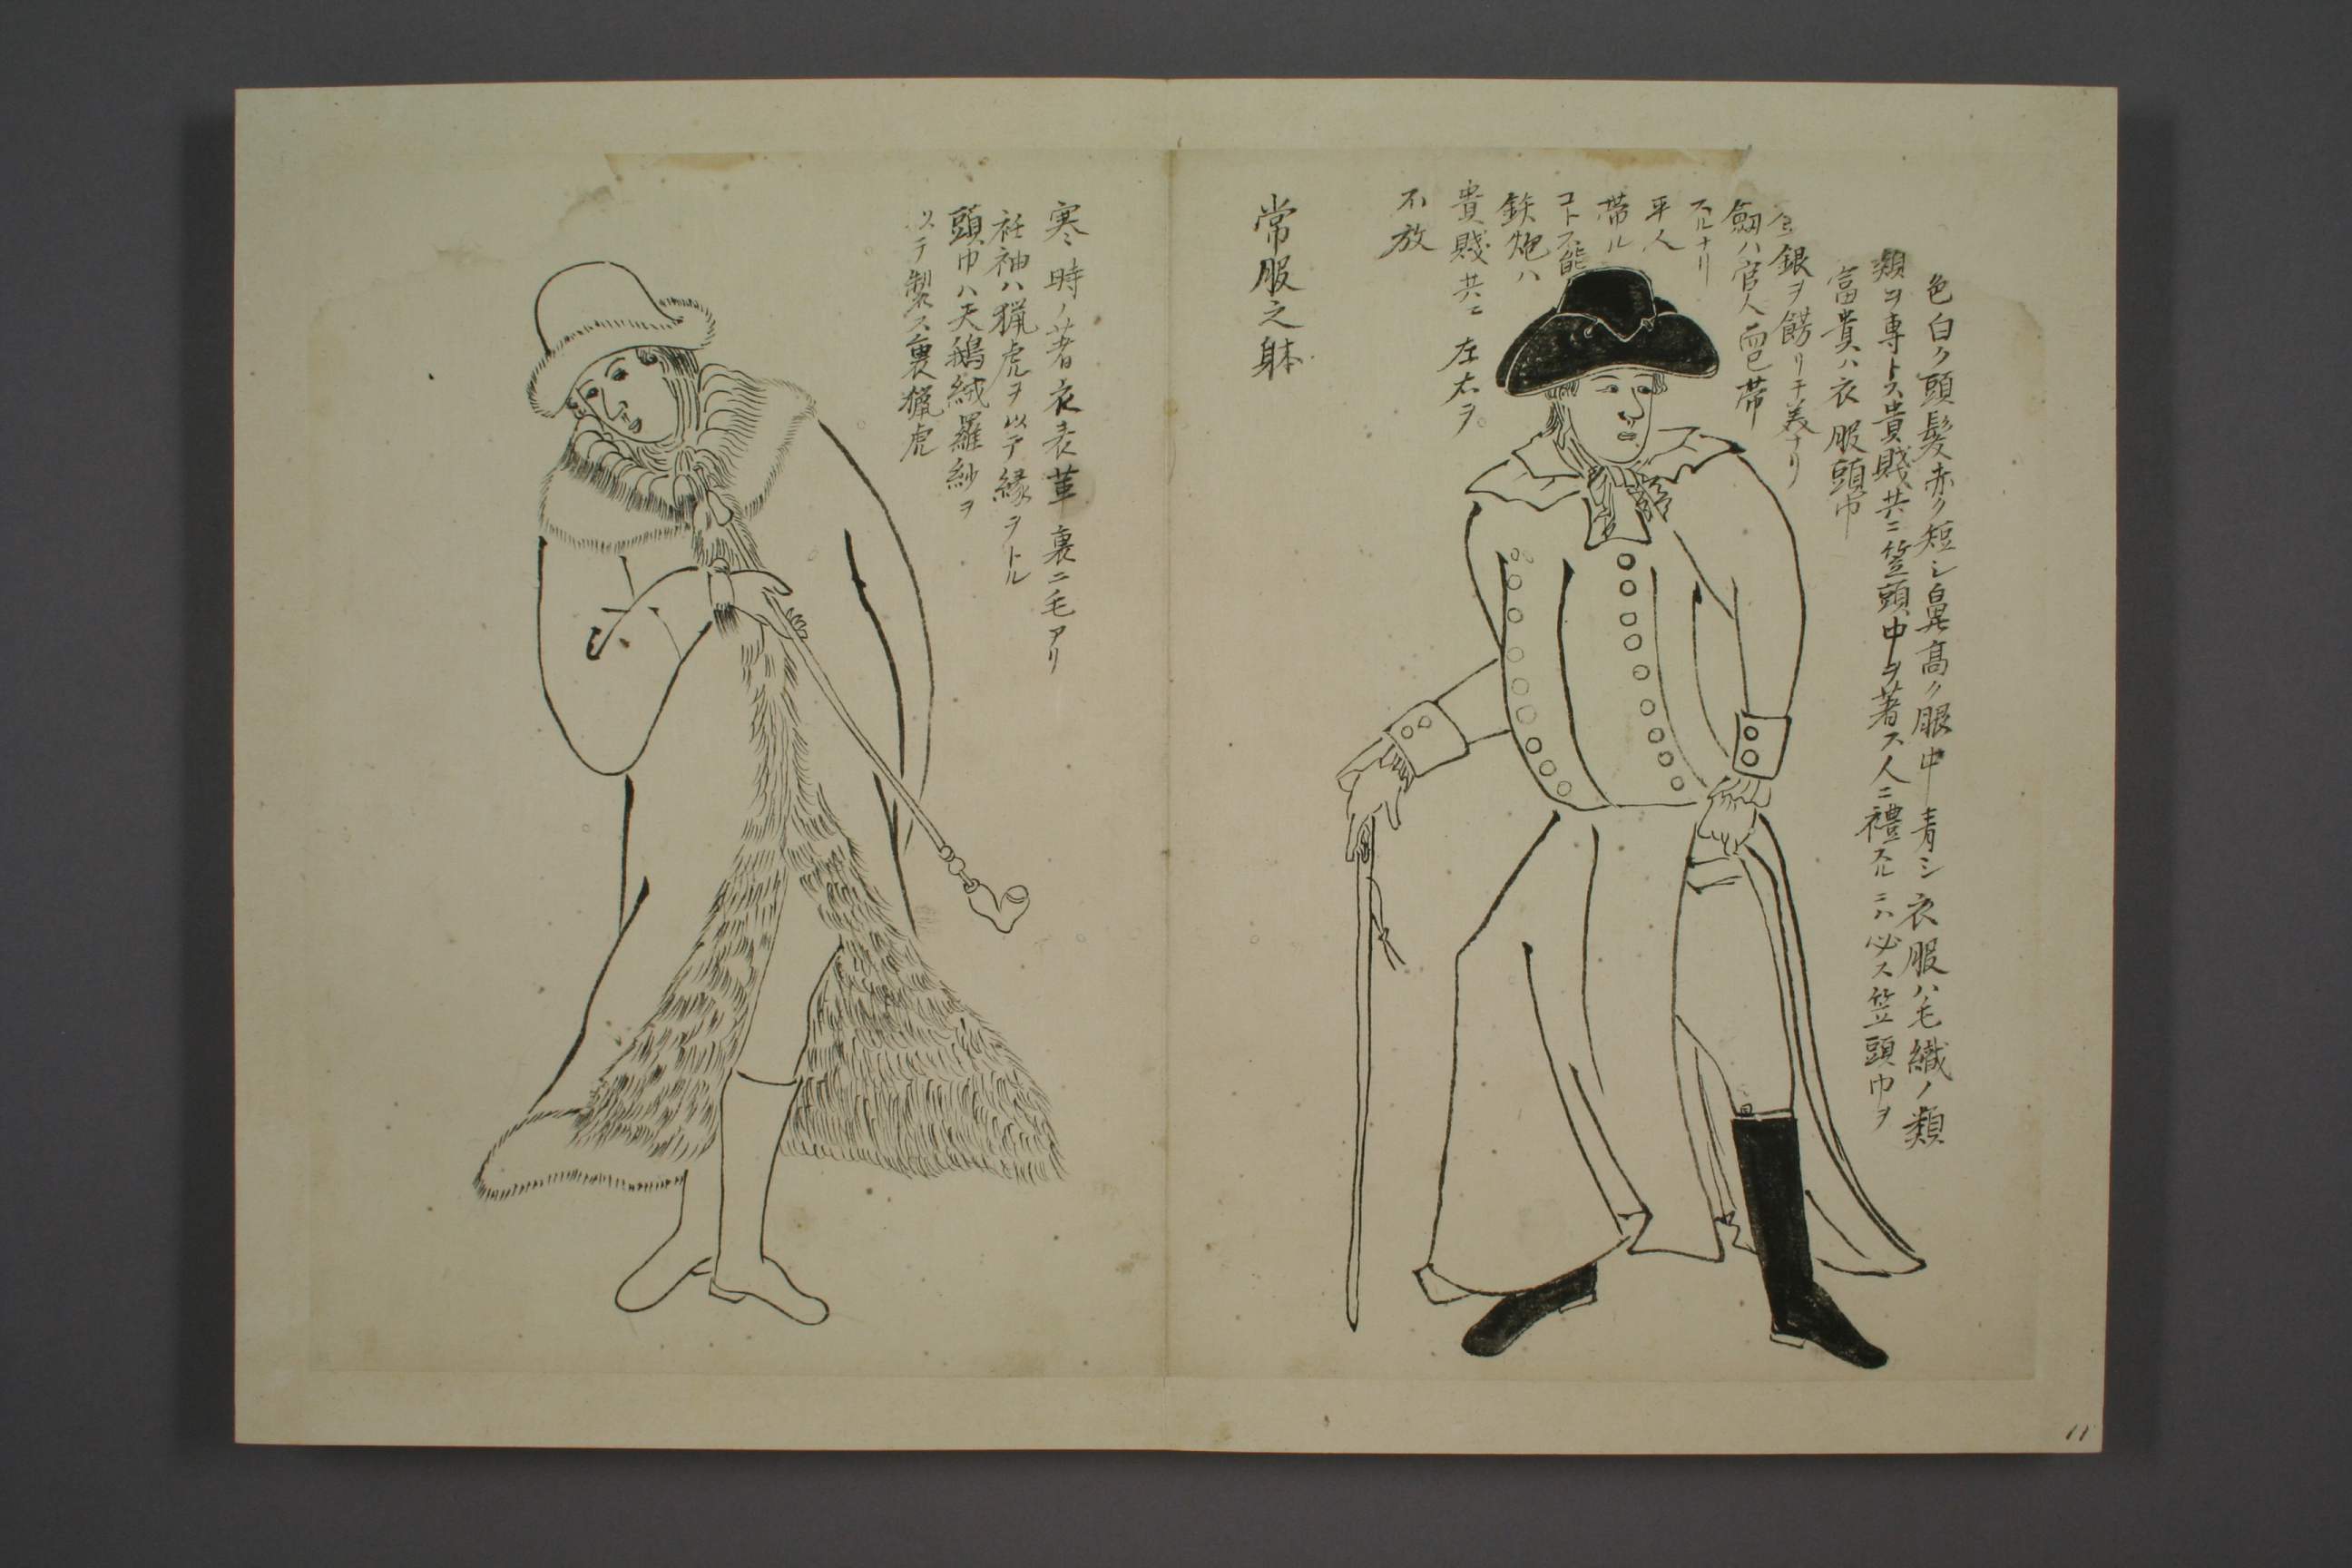 色白ク頭髪赤ク短シ鼻高ク眼中青シ衣服ハ毛織ノ類
類ヲ専トス貴賤共ニ笠頭巾ヲ著ス人ニ禮スルニハ必ス笠頭巾ヲ
富貴ハ衣服頭巾
金銀ヲ餝リ モ美ナリ
劔ハ官人而已帯
スルナリ
平人
帯ル
コトヲ不能
鉄炮ハ
貴賤共ニ左右ヲ
不放
常服之躰
寒時ノ著衣表革裏ニ毛アリ
衽袖ハ猟虎ヲ以テ縁ヲトル
頭巾ハ天鵝絨羅紗ヲ
以テ製ス裏猟虎
11